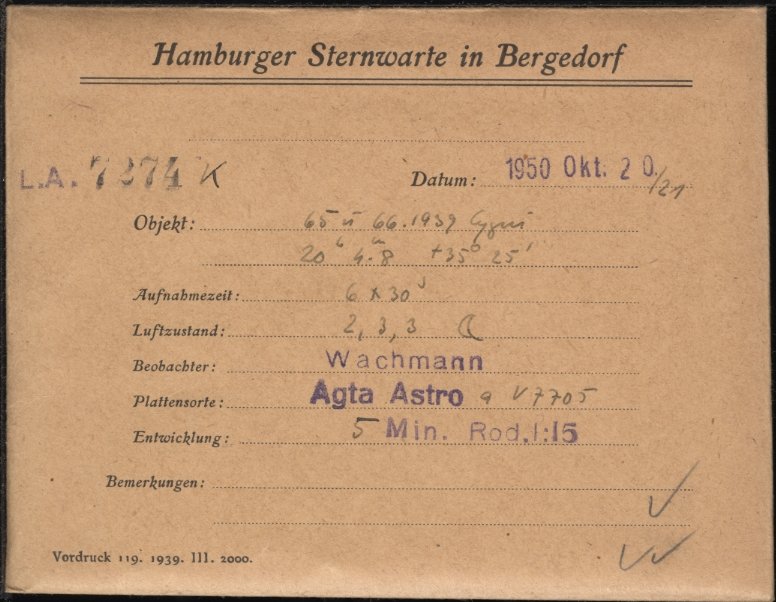 Hamburger Sternwarte in Bergedorf
L.A. 7274 K Datum: 1950 Okt. 20./21
Objekt: 65 u 66.1939 Cygni
20h 4m.8 +35° 25'
Aufnahmezeit: 6 x 30s
Luftzustand: 2, 3, 3 ☾
Beobachter: Wachmann
Plattensorte: Agfa Astro a V7705
Entwicklung: 5 Min. Rod.1:15
Bemerkungen:
Vordruck 119. 1939. III. 2000.